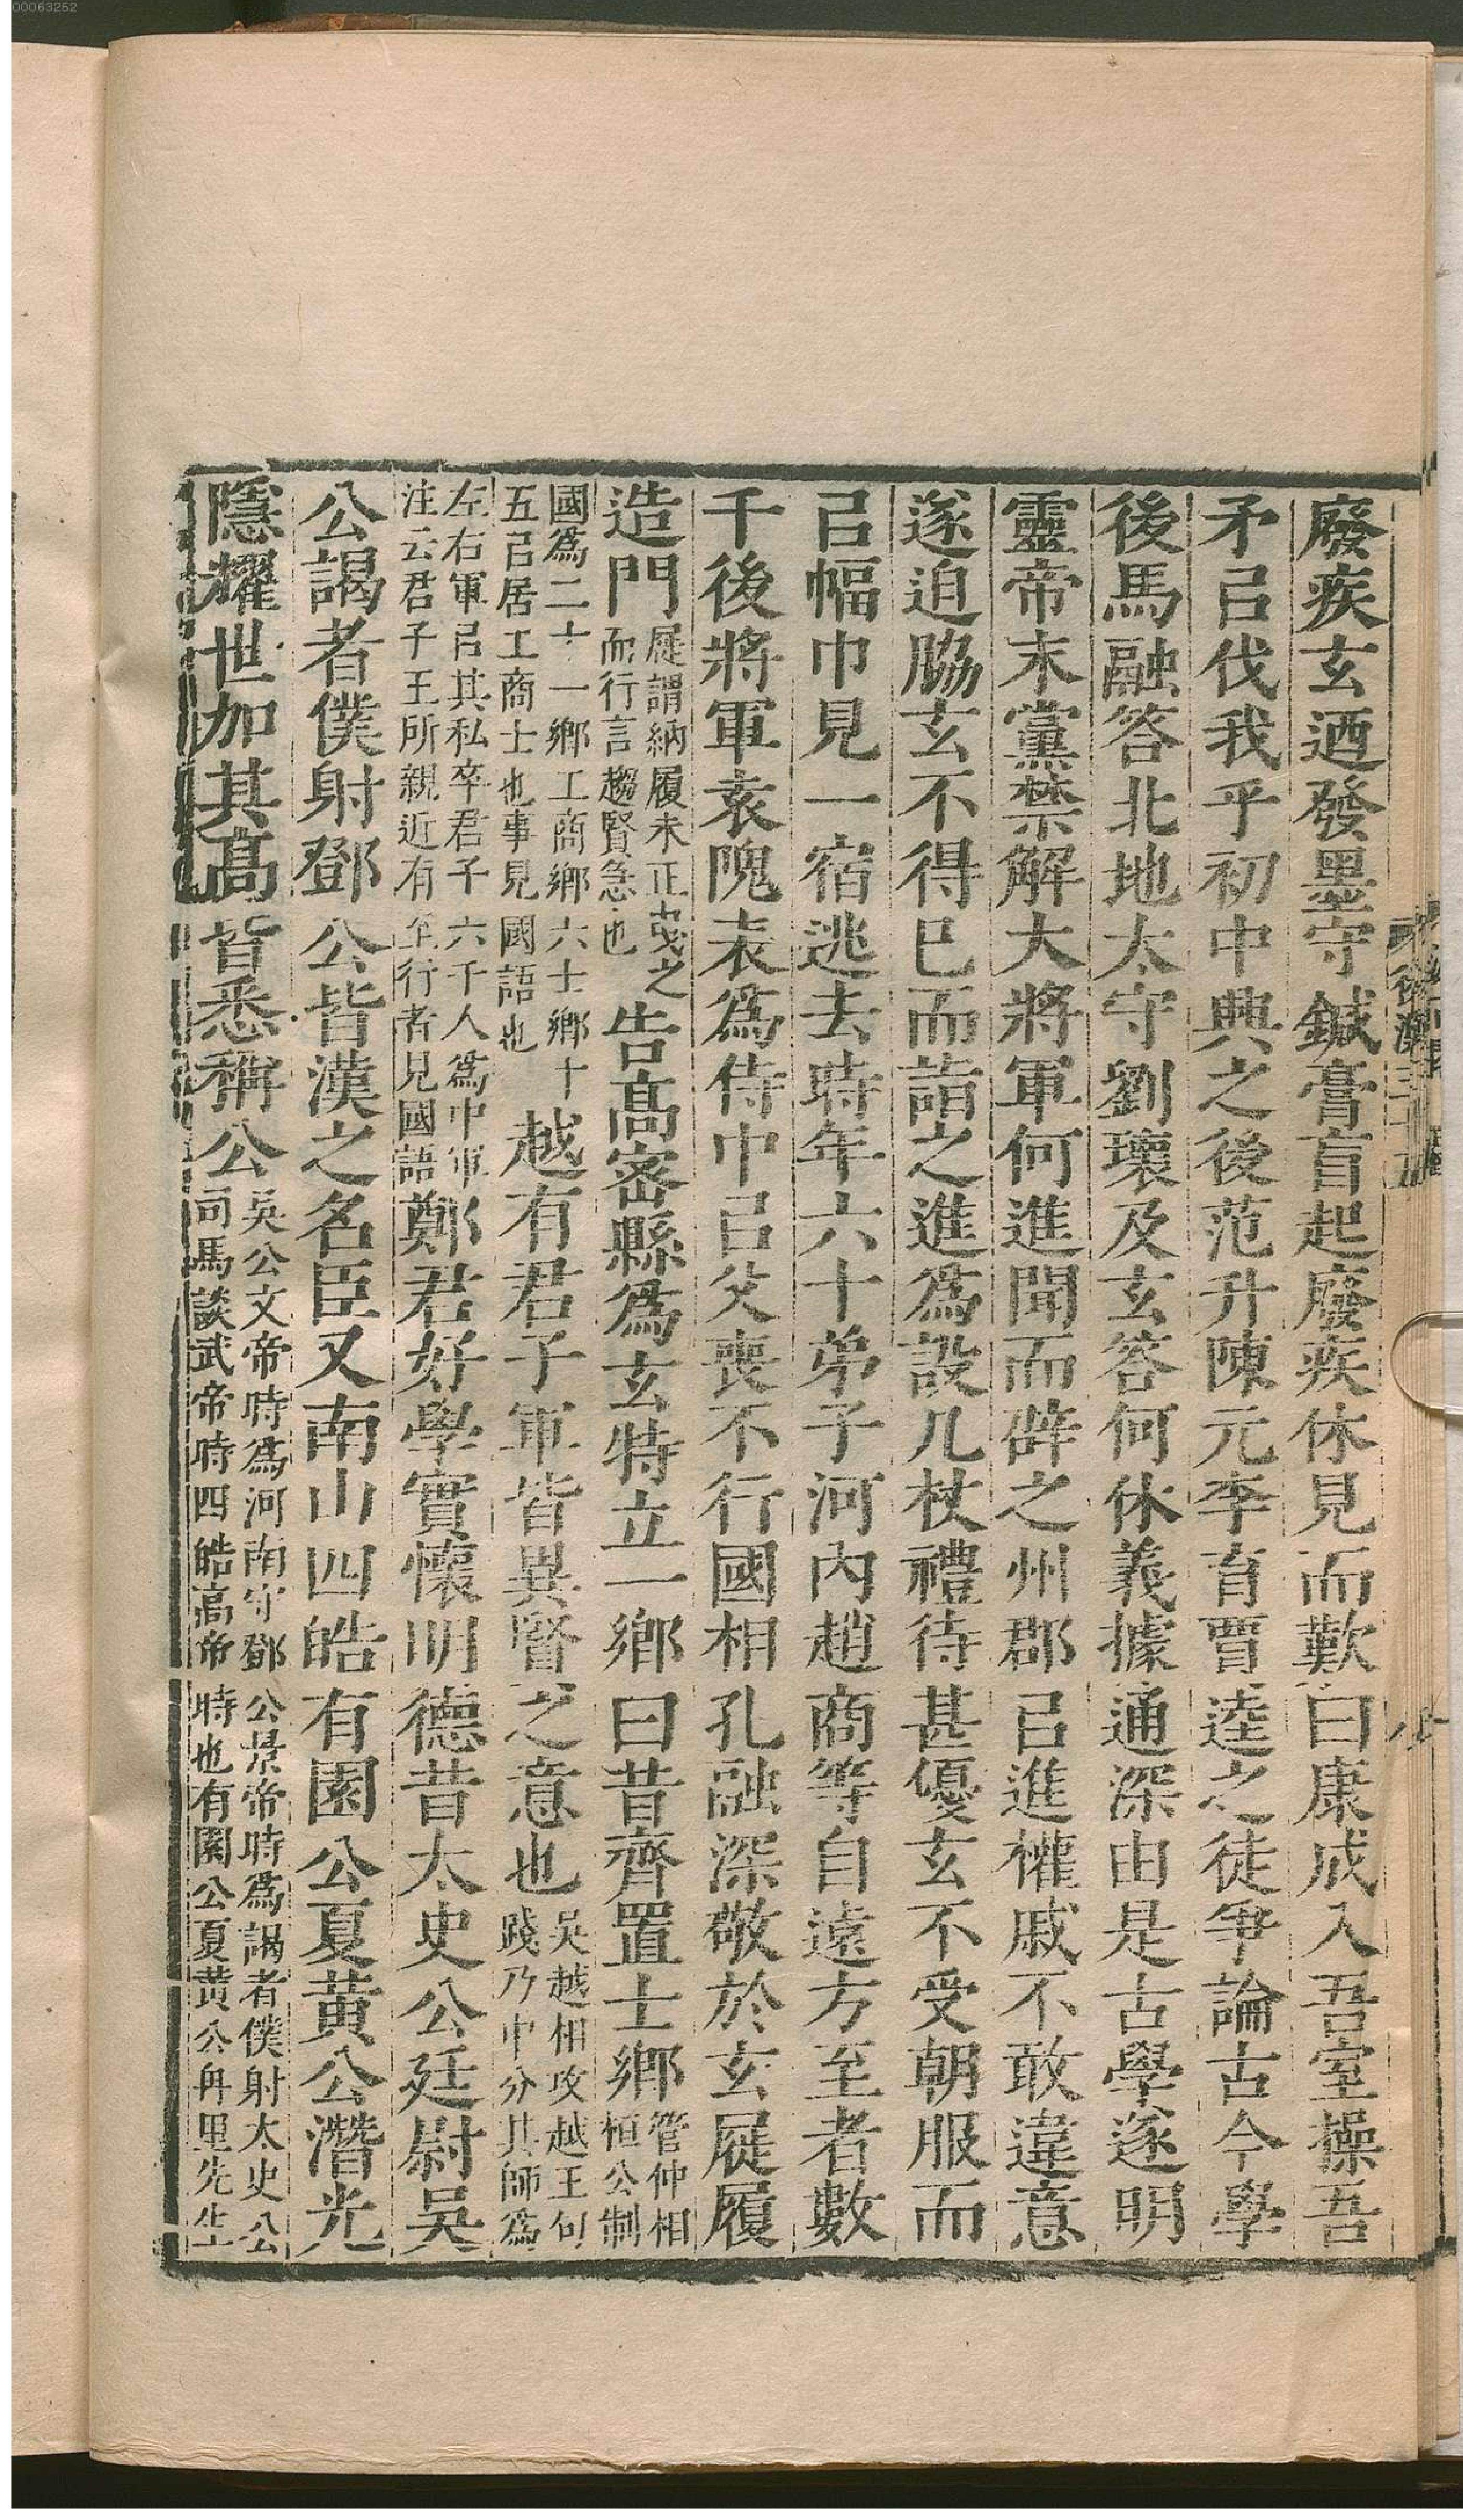 00063252
廢疾玄迺發墨守鍼膏肓起廢疾休見而歎曰康成入吾室操吾
矛㠯伐我乎初中興之後范升陳元李育賈逵之徒爭論古今學
後馬融答北地太守劉瓌及玄答何休義據通深由是古學遂明
靈帝末黨禁解大將軍何進聞而辟之州郡㠯進權戚不敢違意
遂迫脇玄不得已而詣之進爲設几杖禮待甚優玄不受朝服而
㠯幅巾見一宿逃去時年六十弟子河內趙商等自遠方至者數
千後將軍袁隗表爲侍中㠯父喪不行國相孔融深敬於玄屣履
造門
屣謂納履未正曳之
而行言趨賢急也
告高密縣爲玄特立一鄉曰昔齊置士鄉
管仲相
桓公制
國爲二十一鄉工商鄉六士鄉十
五㠯居工商士也事見國語也
越有君子軍皆異賢之意也
吳越相攻越王句
踐乃中分其師爲
左右軍㠯其私卒君子六千人爲中軍
注云君子王所親近有至行者見國語
鄭君好學實懷明德昔太史公廷尉吳
公謁者僕射鄧公皆漢之名臣又南山四皓有園公夏黃公潛光
隱耀世加其高皆悉稱公
吳公文帝時爲河南守鄧公景帝時爲謁者僕射太史公
司馬談武帝時四皓高帝時也有園公夏黃公甪里先生